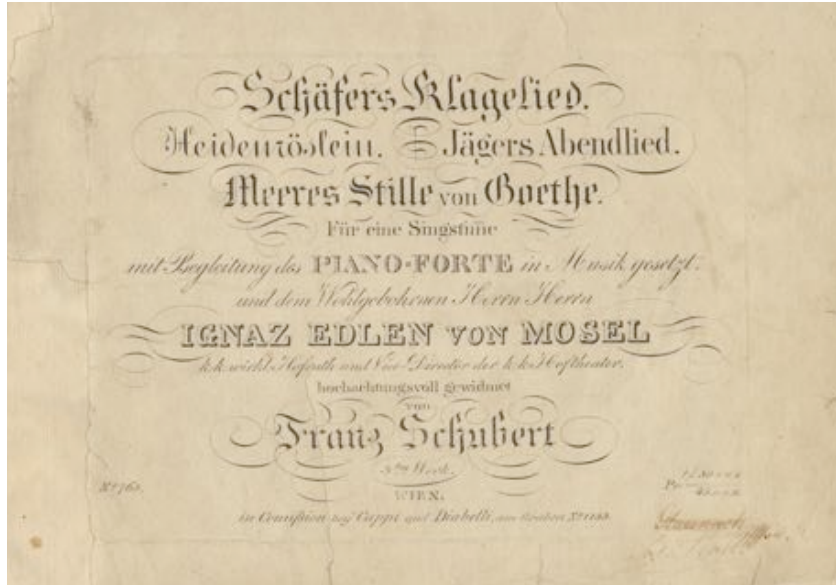 Schäfers Klagelied.
Heidenröslein. Jägers Abendlied.
Meeres Stille von Goethe.
Für eine Singstime
mit Begleitung des PIANO-FORTE in Musik gesetzt.
und dem Wohlgebohrnen Herrn Herrn
IGNAZ EDLEN VON MOSEL
k.k. wirkl. Hofrath und Vice-Director der k.k. Hoftheater.
hochachtungsvoll gewidmet
von
Franz Schubert
3tes Werk.
WIEN.
in Comission bey Cappi und Diabelli, am Graben No 1133.
No 768.
Pr.